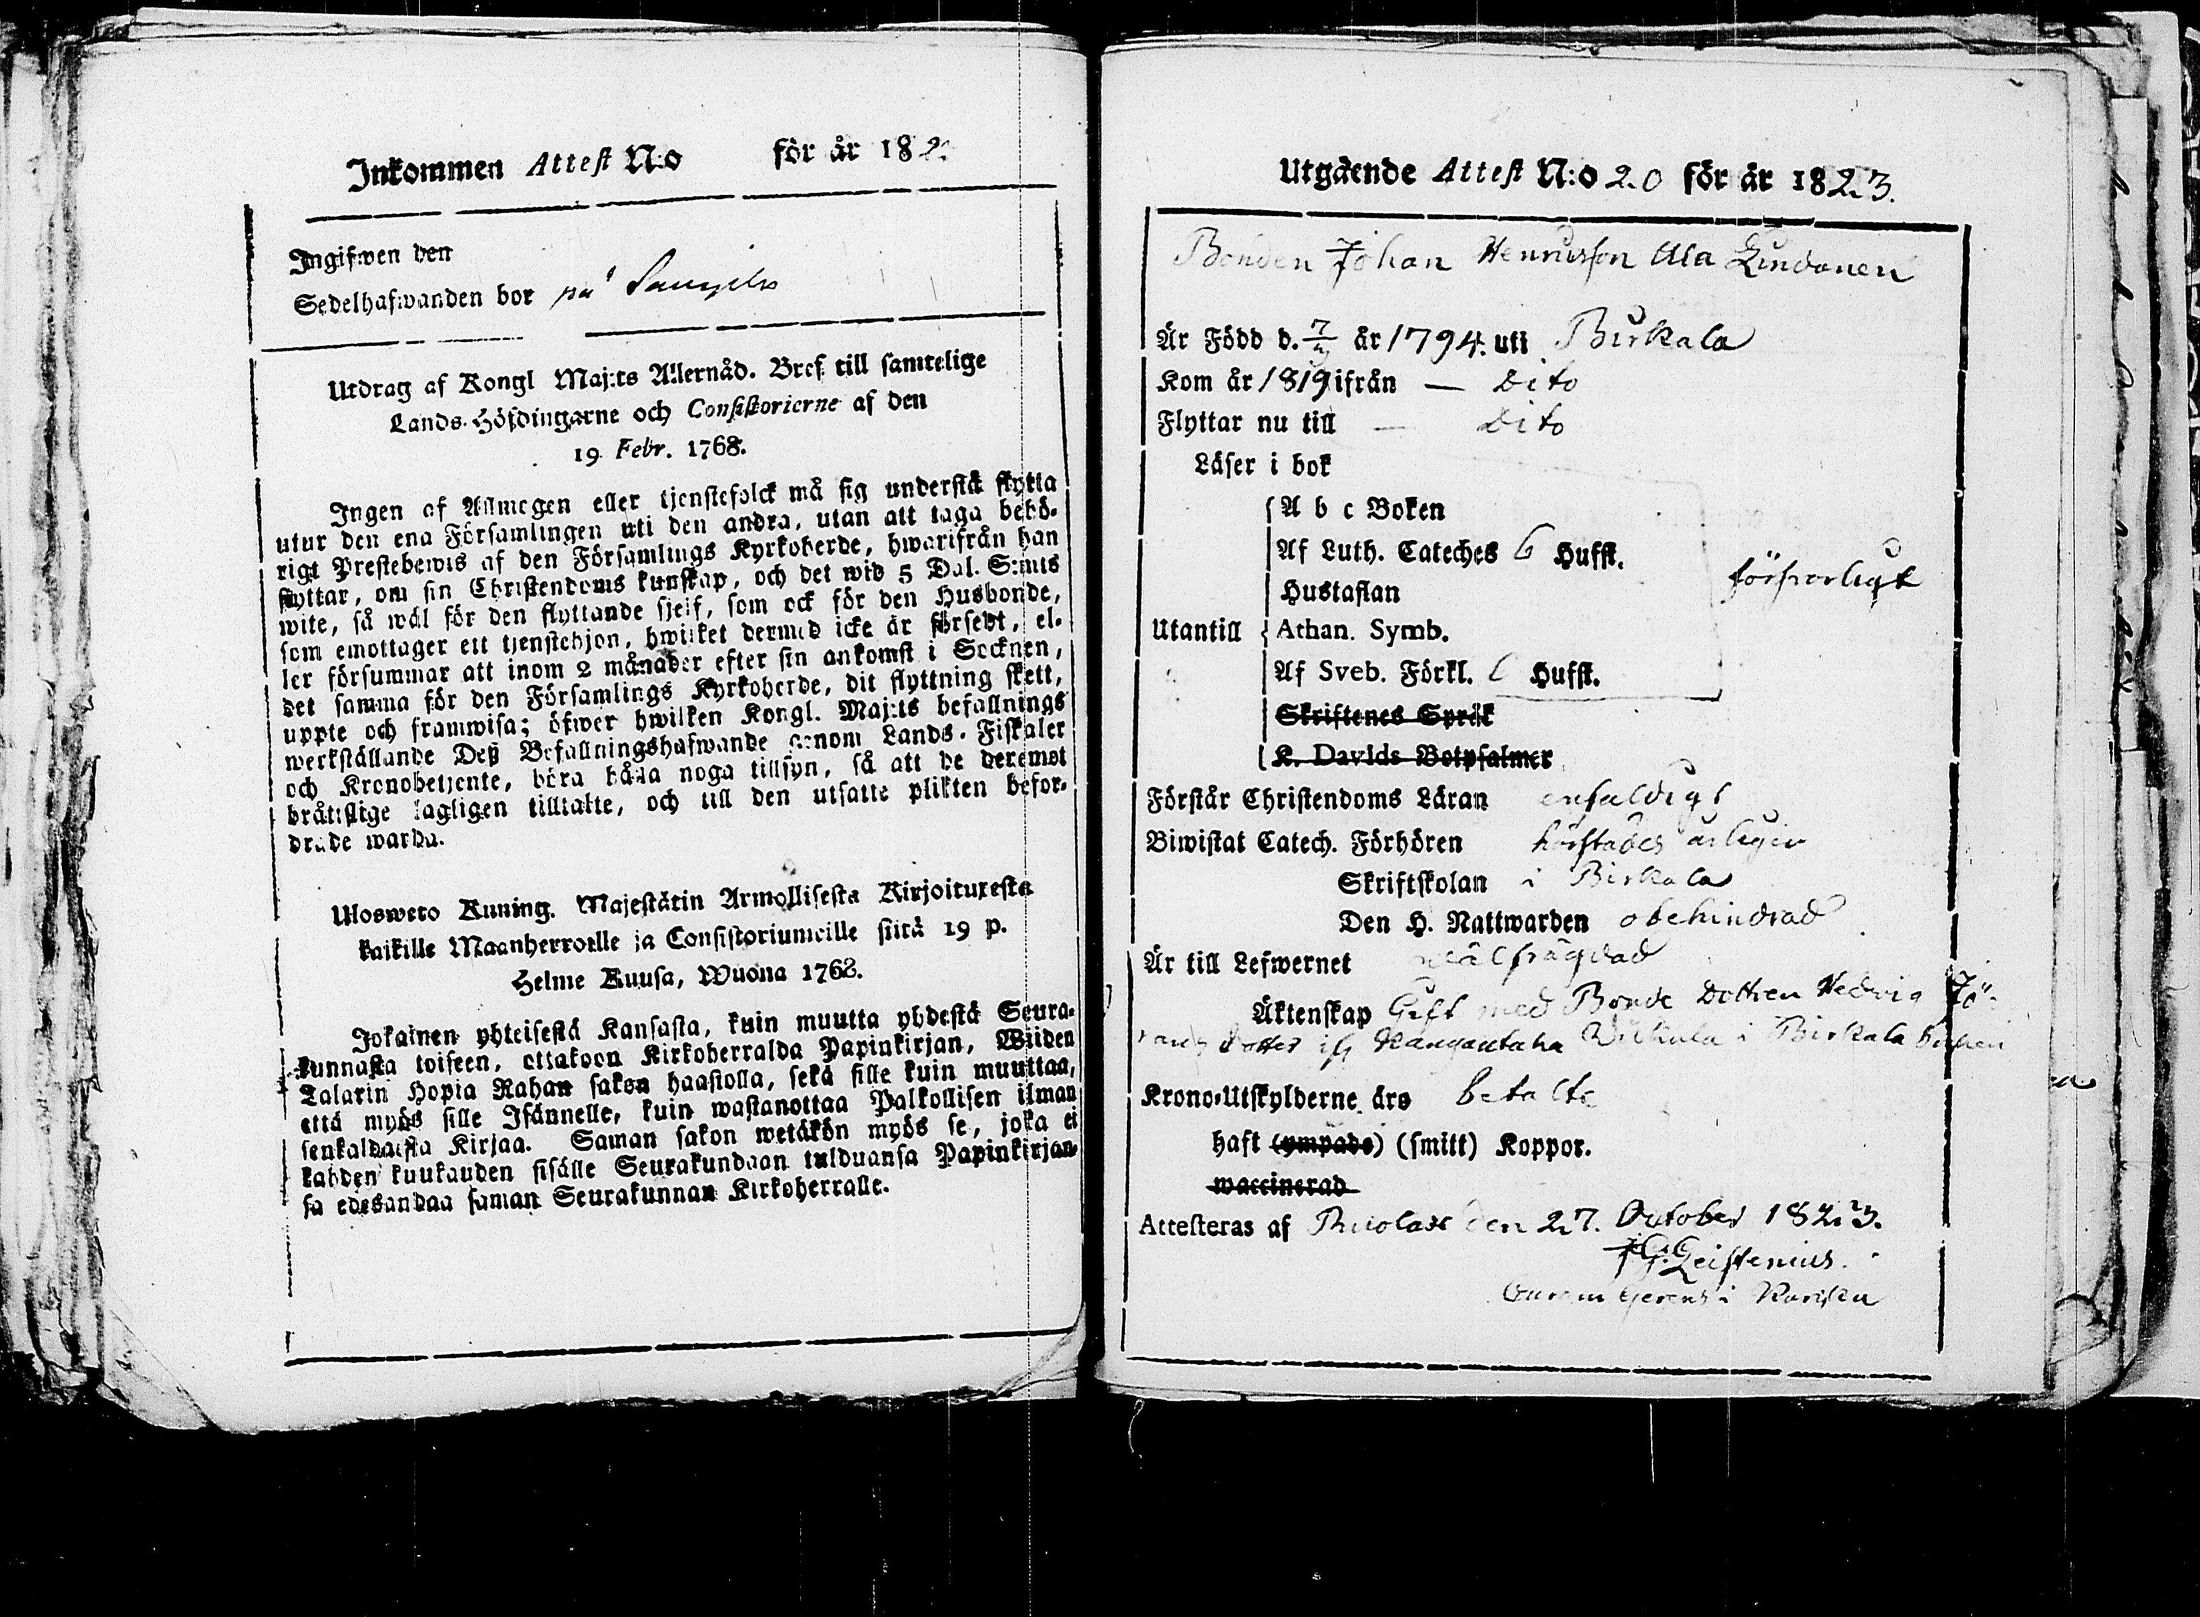 Inkommen Attest N:o för år 182
Ingifwen den
Sedelhafwanden bor på
Utdrag af Kongl Maj:ts Allernåd. Bref till samtelige
Lands-Höfdingarne och Consistorierne af den
19 Febr. 1768.
Ingen af Allmogen eller tjenstefolck må sig understå flytta
utur den ena Församlingen uti den andra, utan att taga behö-
rigt Prestebewis af den Församlings Kyrkoherde, hwarifrån han
flyttar, om sin Christendoms kunskap, och det wid 5 Dal. S:mts
wite, så wäl för den flyttande sjelf, som ock för den Husbonde,
som emottager ett tjenstehjon, hwilket dermed icke är försedt, el-
ler försummar att inom 2 månader efter sin ankomst i Socknen,
det samma för den Församlings Kyrkoherde, dit flyttning skett,
uppte och framwisa; öfwer hwilken Kongl. Maj:ts befallnings
werkställande Deß Befallningshafwande genom Lands-Fiskaler
och Kronobetjente, böra hålla noga tillsyn, så att de deremot
bråtislige lagligen tilltalte, och till den utsatte plikten befor-
drade warda.
Ulosweto Kuning. Majestätin Armollisesta Kirjoituxesta
kaikille Maanherroille ja Consistoriumeille siitä 19 p.
Helme Kuusa, Wuona 1768.
Jokainen yhteisestä Kansasta, kuin muutta yhdestä Seura-
kunnasta toiseen, ottakoon Kirkoherralda Papinkirjan, Wiiden
Talarin Hopia Rahan sakon haastolla, sekä sille kuin muuttaa,
että myös sille Isännelle, kuin wastanottaa Palkollisen ilman
senkaldaista Kirjaa. Saman sakon wetäkön myös se, joka ei
kahden kuukauden sisälle Seurakundaan tulduansa Papinkirjan-
sa edesandaa saman Seurakunnan Kirkoherralle.
Utgående Attest N:o 20 för år 1823.
Bonden Johan Henricsson Ala
Är Född d. 7 år 1794. uti Birkala
Kom år 1819 ifrån — Dito
Flyttar nu till — Dito
Läser i bok
A b c Boken
Af Luth. Cateches 6 Hufst.
försvarligt
Hustaflan
Utantill Athan. Symb.
Af Sveb. Förkl. 6 Hufst.
Skriftenes Språk
K. Davids Botpsalmer
Förstår Christendoms Läran enfaldigt
Biwistat Catech. Förhören
Skriftskolan i Birkala
Den H. Nattwarden obehindrad
Är till Lefwernet wälfrägdad
Äktenskap Gift med Bonde Dottren Hedvig Jö-
rans dotter i Birkala
Krono-Utskylderne äro betalte
haft (ympade) (smitt) Koppor.
waccinerad
Attesteras af den 27. October 1823.